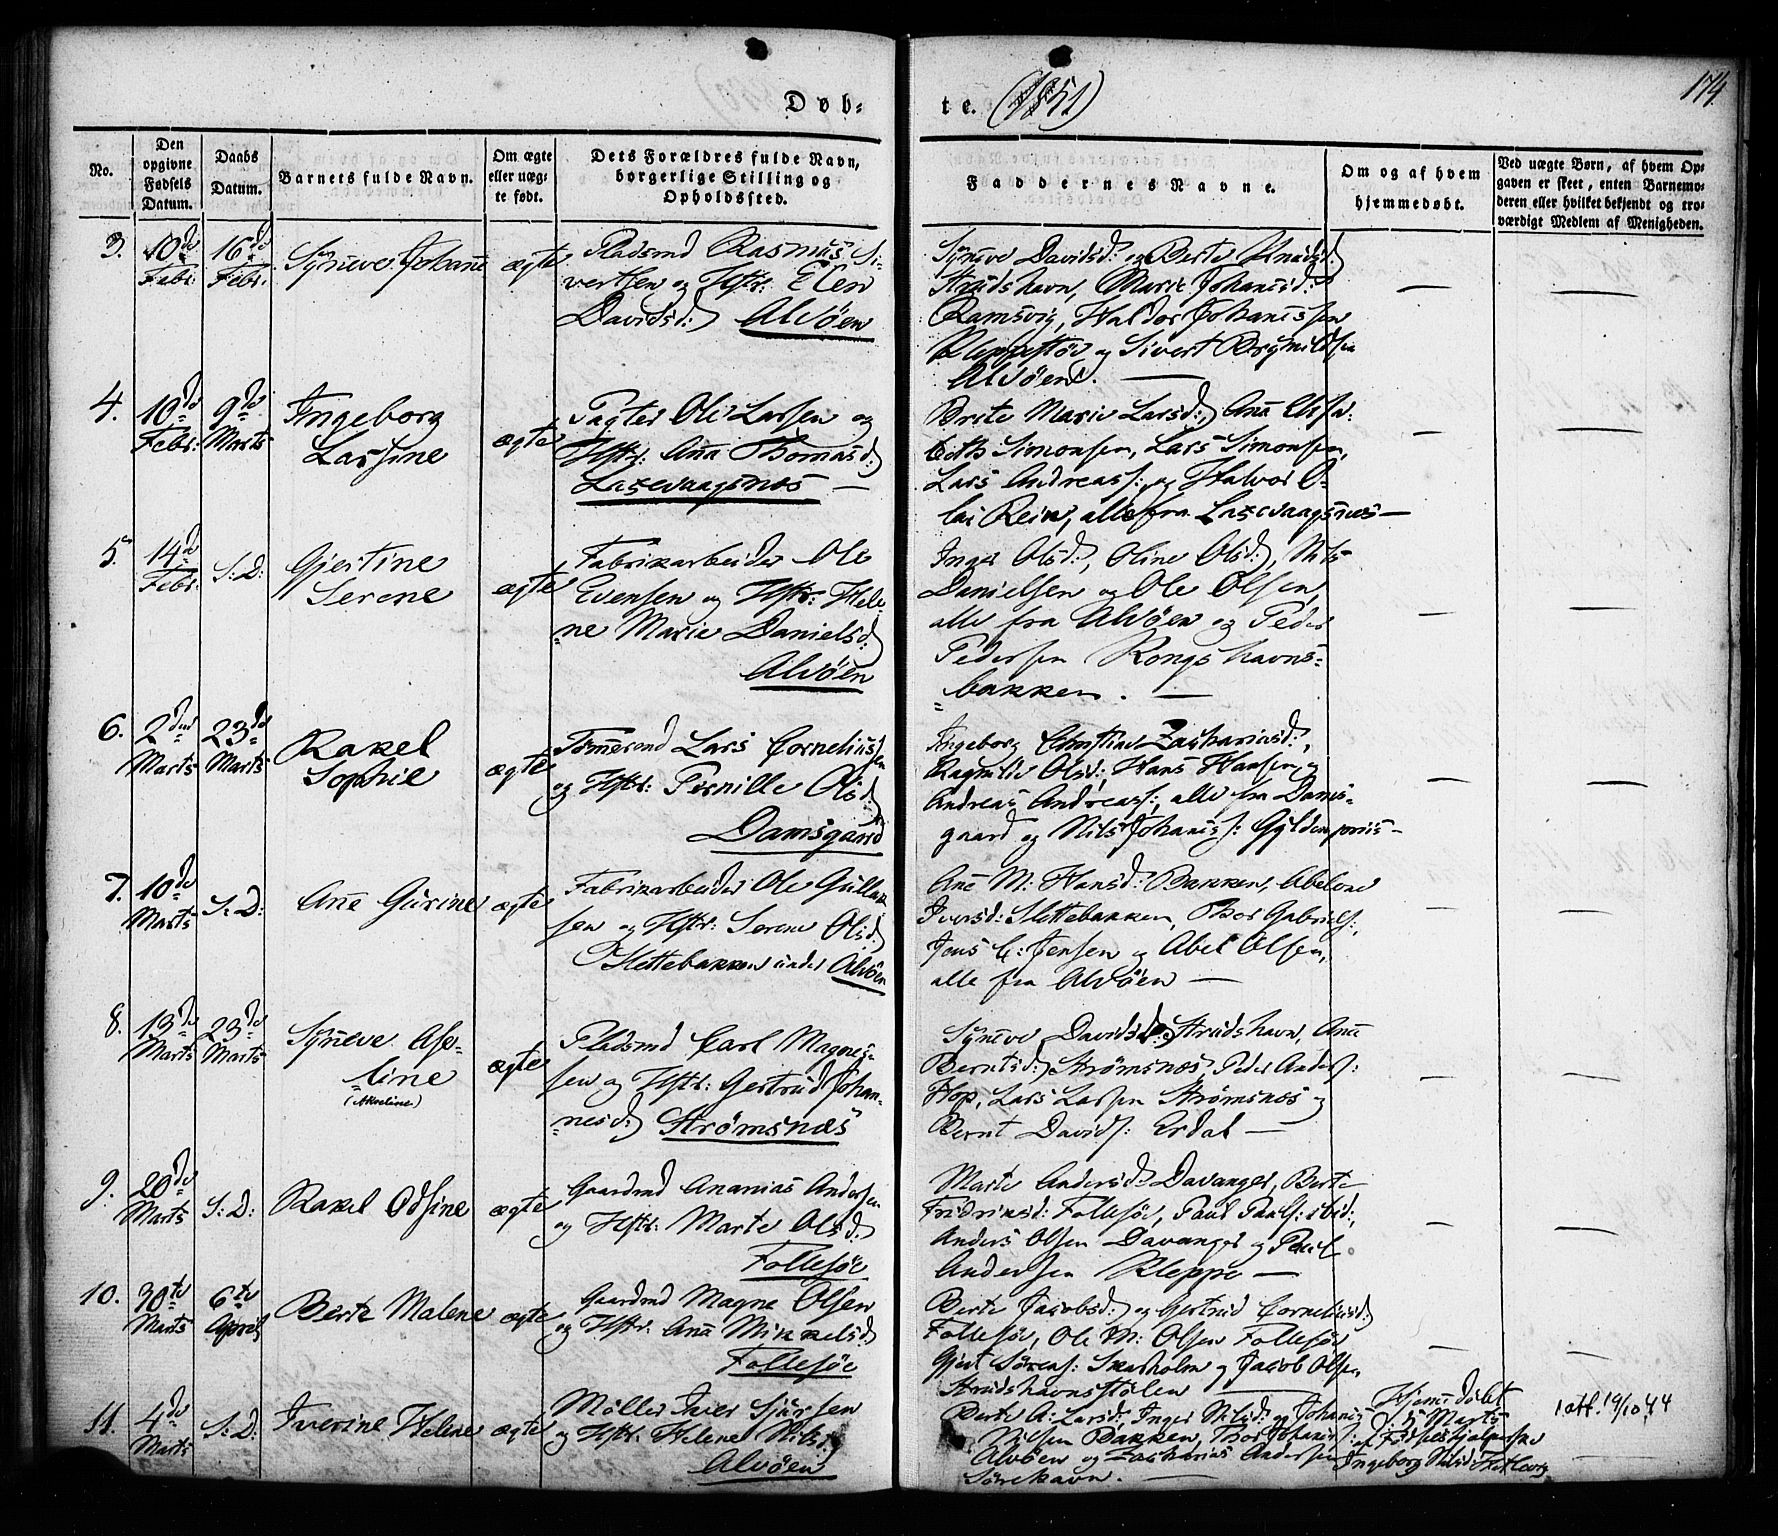 Døb-
te. (1851)
174.
No.
Den opgivne Fødsels Datum.
Daabs Datum.
Barnets fulde Navn.
Om ægte eller uægte født.
Dets Forældres fulde Navn, borgerlige Stilling og Opholdssted.
Faddernes Navne.
Om og af hvem hjemmedøbt.
Ved uægte Børn, af hvem Opgaven er skeet, enten Barnemoderen eller hvilket bekjendt og troværdigt Medlem af Menigheden.
3. 10de Febr: 16de Febr: Syneve Johane ægte
Pladsmd Rasmus Si-
vertsen og Hstr: Elen
Davidsd: Alvøen
Syneve Davidsd: og Berte Knudsd:
Strudshavn, Marie Johanisd:
Ramsvig, Haldor Johanissen
Kleppestøe og Sivert Brynildsen
Alvøen. —
4. 10de Febr: 9de Marts Ingeborg
Larsine
ægte
Pagter Ole Larsen og
Hstr: Ana Thomasd:
Laxevaagsnæs —
Brite Marie Larsd: Ana Elisa-
beth Simonsen, Lars Simonsen,
Lars Andreas: og Halvor O-
lai Rein, alle fra Laxevaagsnæs —
5. 14de Febr: S: D: Gjertine
Serene
ægte
Fabrikarbeider Ole
Evensen og Hstr: Hele-
ne Marie Danielsd:
Alvøen
Inger Olsd:, Oline Olsd:, Nils
Danielsen og Ole Olsen,
alle fra Alvøen og Peder
Pedersen Kongshavns-
bakken. —
6. 2den Marts 23de Marts Rakel
Sophie
ægte
Tømermd Lars Corneliussen
og Hstr: Pernille Olsd:
Damsgaard
Ingeborg Christine Zachariasd:,
Ragnilde Olsd:, Hans Hansen og
Andreas Andreass:, alle fra Dams-
gaard og Nils Johaniss: Gyldenpriis —
7. 10de Marts S: D: Ane Gurine ægte
Fabrikarbeider Ole Gullak-
sen og Hstr: Serene Olsd:
Slettebakken under Alvøen
Ane M: Hansd: Bakken, Abelone
Iversd: Slettebakken, Thor Gabriels:,
Jens C: Jensen og Abel Olsen,
alle fra Alvøen —
8. 13de Marts 23de Marts Syneve Axe-
line
(Akseline)
ægte
Pladsmd Carl Magnes-
sen og Hstr: Gertrud Johan-
nesd: Strømsnæs
Syneve Davidsd: Strudshavn, Ane
Berntsd: Strømsnæs, Peder Anders:
Hop, Lars Larsen Strømsnæs og
Bernt Davids: Erdal —
9. 20de Marts S: D: Rakel Odsine ægte
Gaardmd Ananias Andersen
og Hstr: Marte Olsd:
Follesøe
Marte Andersd: Davanger, Berte
Fridriksd: Follesøe, Paul Pauls: ibid:,
Anders Olsen Davanger og Poul
Andersen Kleppe —
10. 30te Marts 6te April Berte Malene ægte
Gaardmd Magne Olsen
og Hstr: Ana Mikkelsd:
Follesøe
Berte Jacobsd: og Gertrud Cornelisd:
Follesøe, Ole M: Olsen Follesøe
Gjert Sørens: Skarholm og Jacob Olsen
Strudshavnstølen —
11. 4de Marts S: D: Iverine Helene ægte
Møller Iver Sjursen
og Hstr: Helene Nilsd:
Alvøen
Berte A: Larsd:, Inger Nilsd: og Johanis
Nilsen Bakken, Thor Johanis:
Alvøen og Zacharias Andersen
Sørehavn. —
Hjemedøbt
d. 5 Marts
af Fødselshjælperske
Ingeborg Nilsd:
1 att. 19/10 44